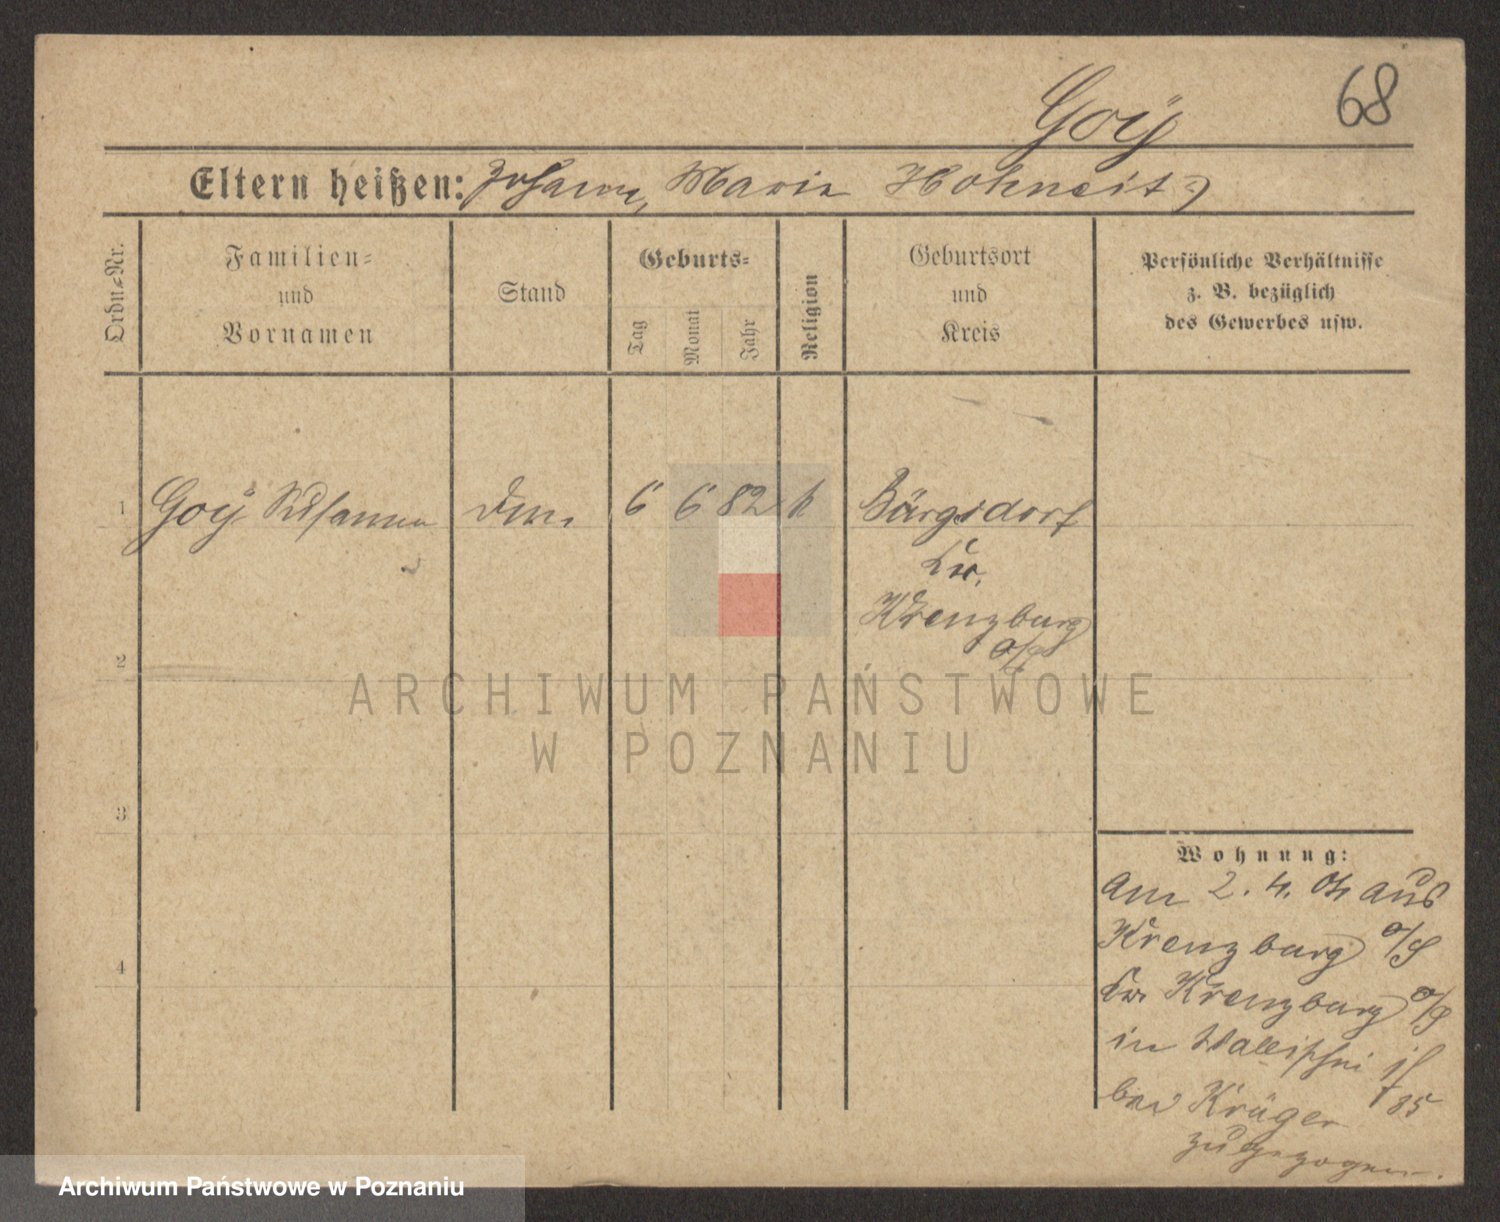 68
Goÿ
Eltern heißen: Johann, Marie Hohneit
Ordn.=Nr.
Familien=
und
Vornamen
Stand
Geburts=
Tag
Monat
Jahr
Religion
Geburtsort
und
Kreis
Persönliche Verhältnisse
z. B. bezüglich
des Gewerbes usw.
1 Goÿ Susanna 6 6 82 k Bürgsdorf
Kr.
Kreuzburg
o/S
2
3
4
Wohnung:
am 2. 4. 04 aus
Kreuzburg o/S
Kr. Kreuzburg o/S
in Wallischei
bei Krüger 35
zugezogen.
ARCHIWUM PAŃSTWOWE
W POZNANIU
Archiwum Państwowe w Poznaniu